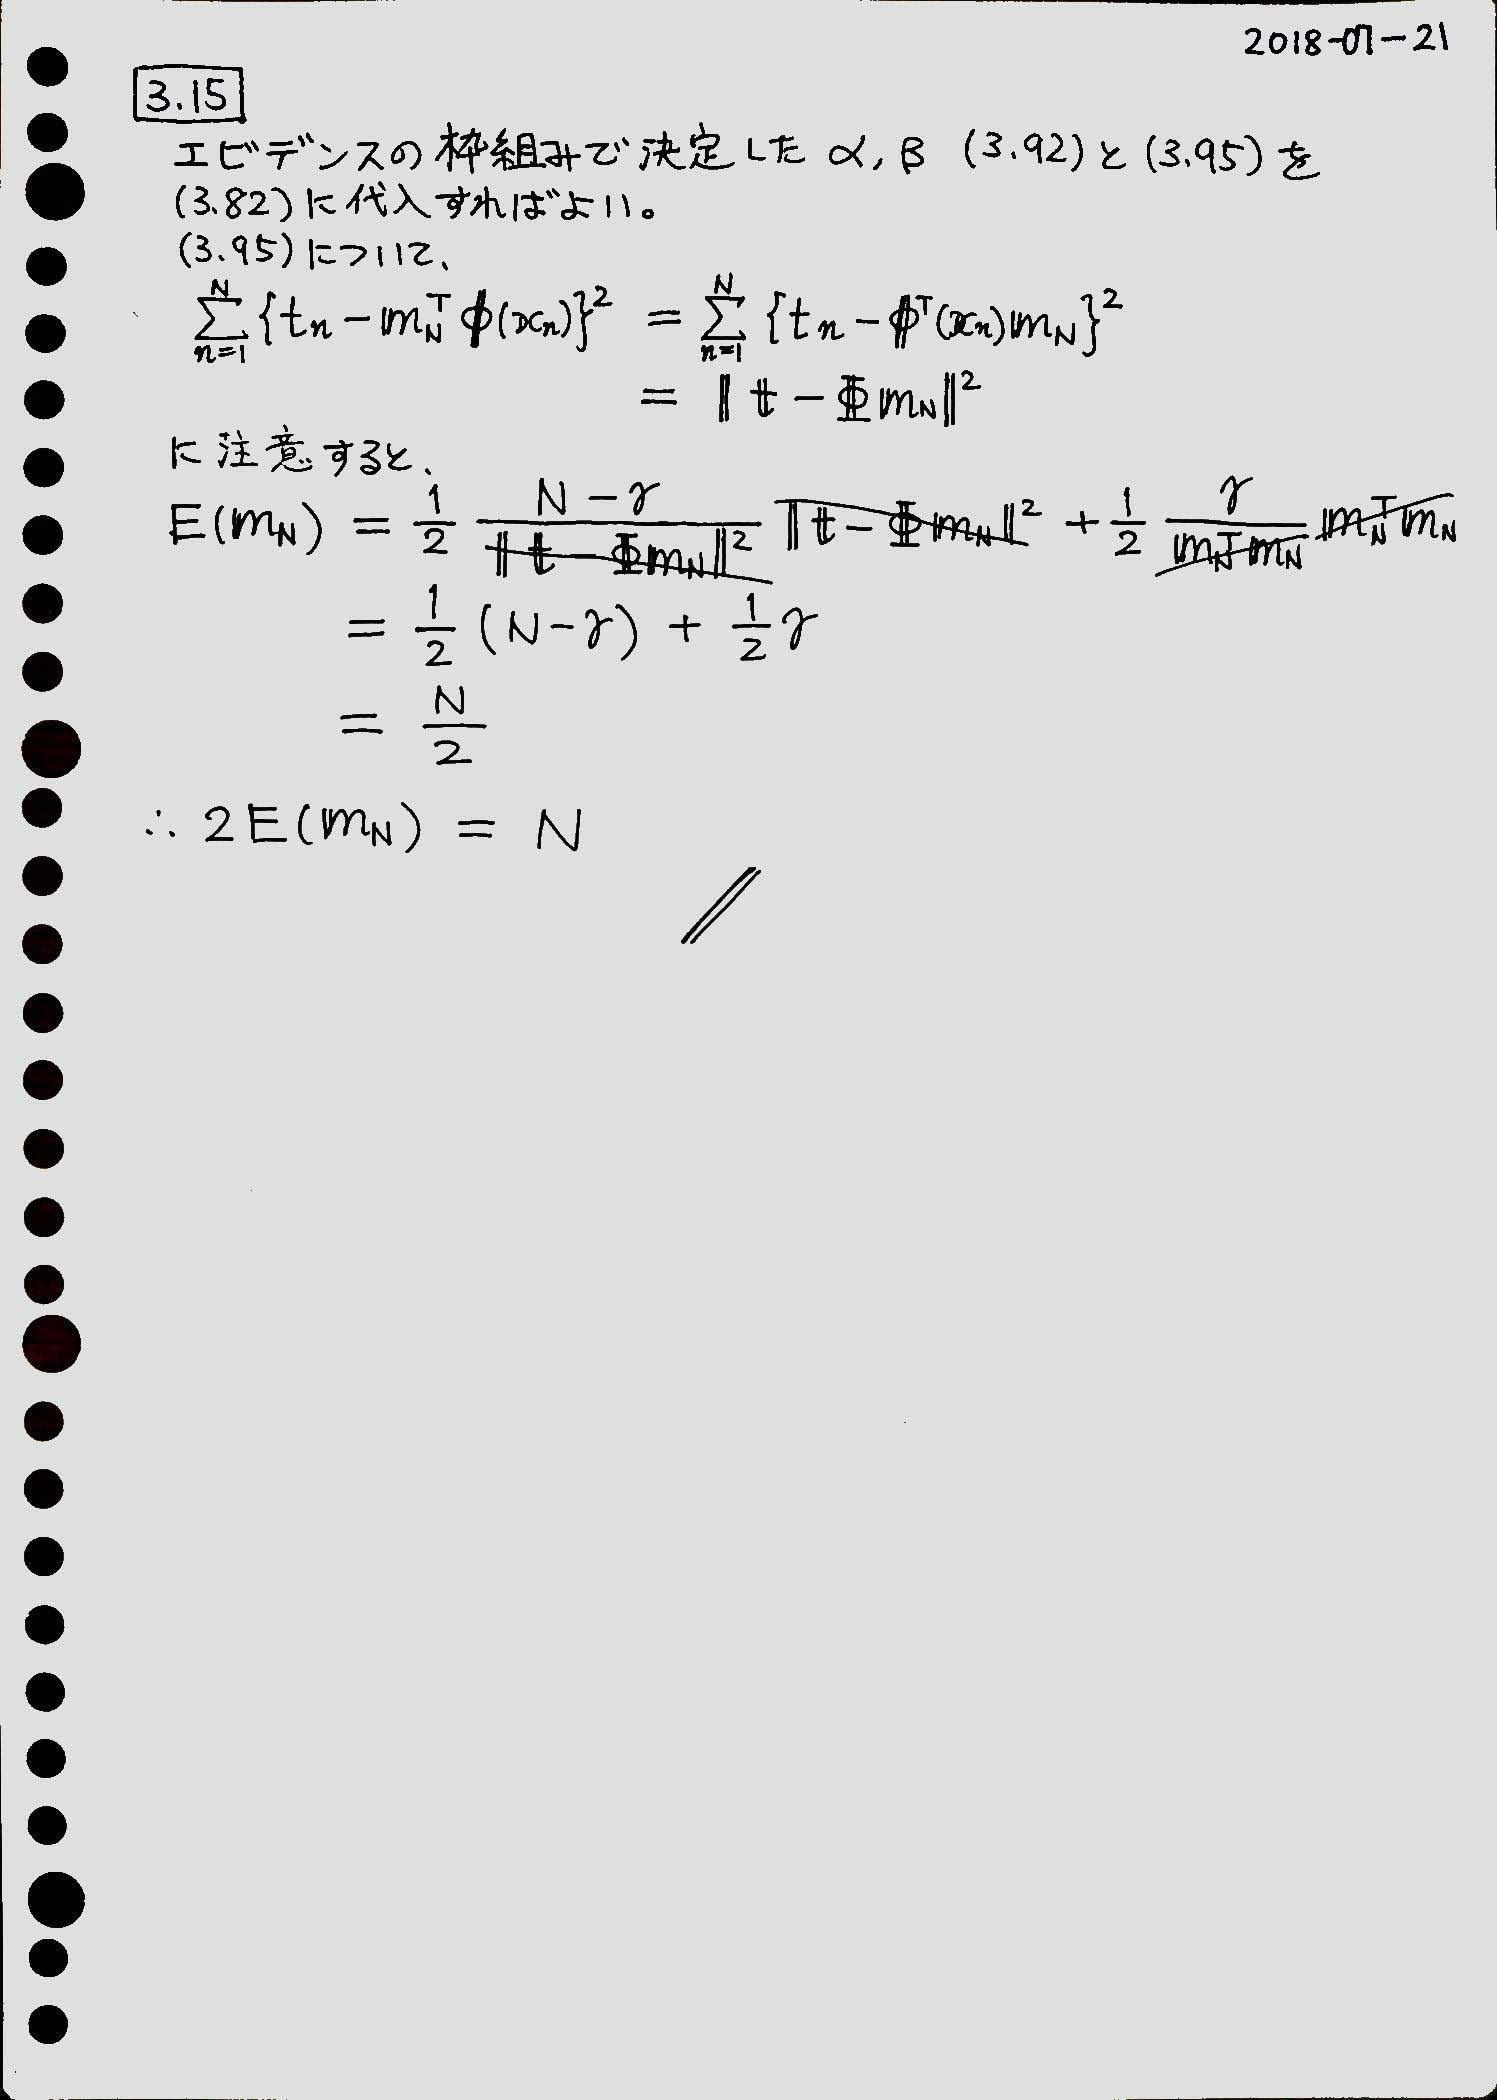 2018-07-21
3.15
エビデンスの枠組みで決定した α, β (3.92)と(3.95)を
(3.82)に代入すればよい。
(3.95)について、
\sum_{n=1}^{N} {t_n - m_N^T φ(x_n)}^2 = \sum_{n=1}^{N} {t_n - φ^T(x_n) m_N}^2
= ‖t - Φ m_N‖^2
に注意すると、
E(m_N) = \frac{1}{2} \frac{N - γ}{‖t - Φ m_N‖^2} ‖t - Φ m_N‖^2 + \frac{1}{2} \frac{γ}{m_N^T m_N} m_N^T m_N
= \frac{1}{2} (N - γ) + \frac{1}{2} γ
= \frac{N}{2}
∴ 2E(m_N) = N